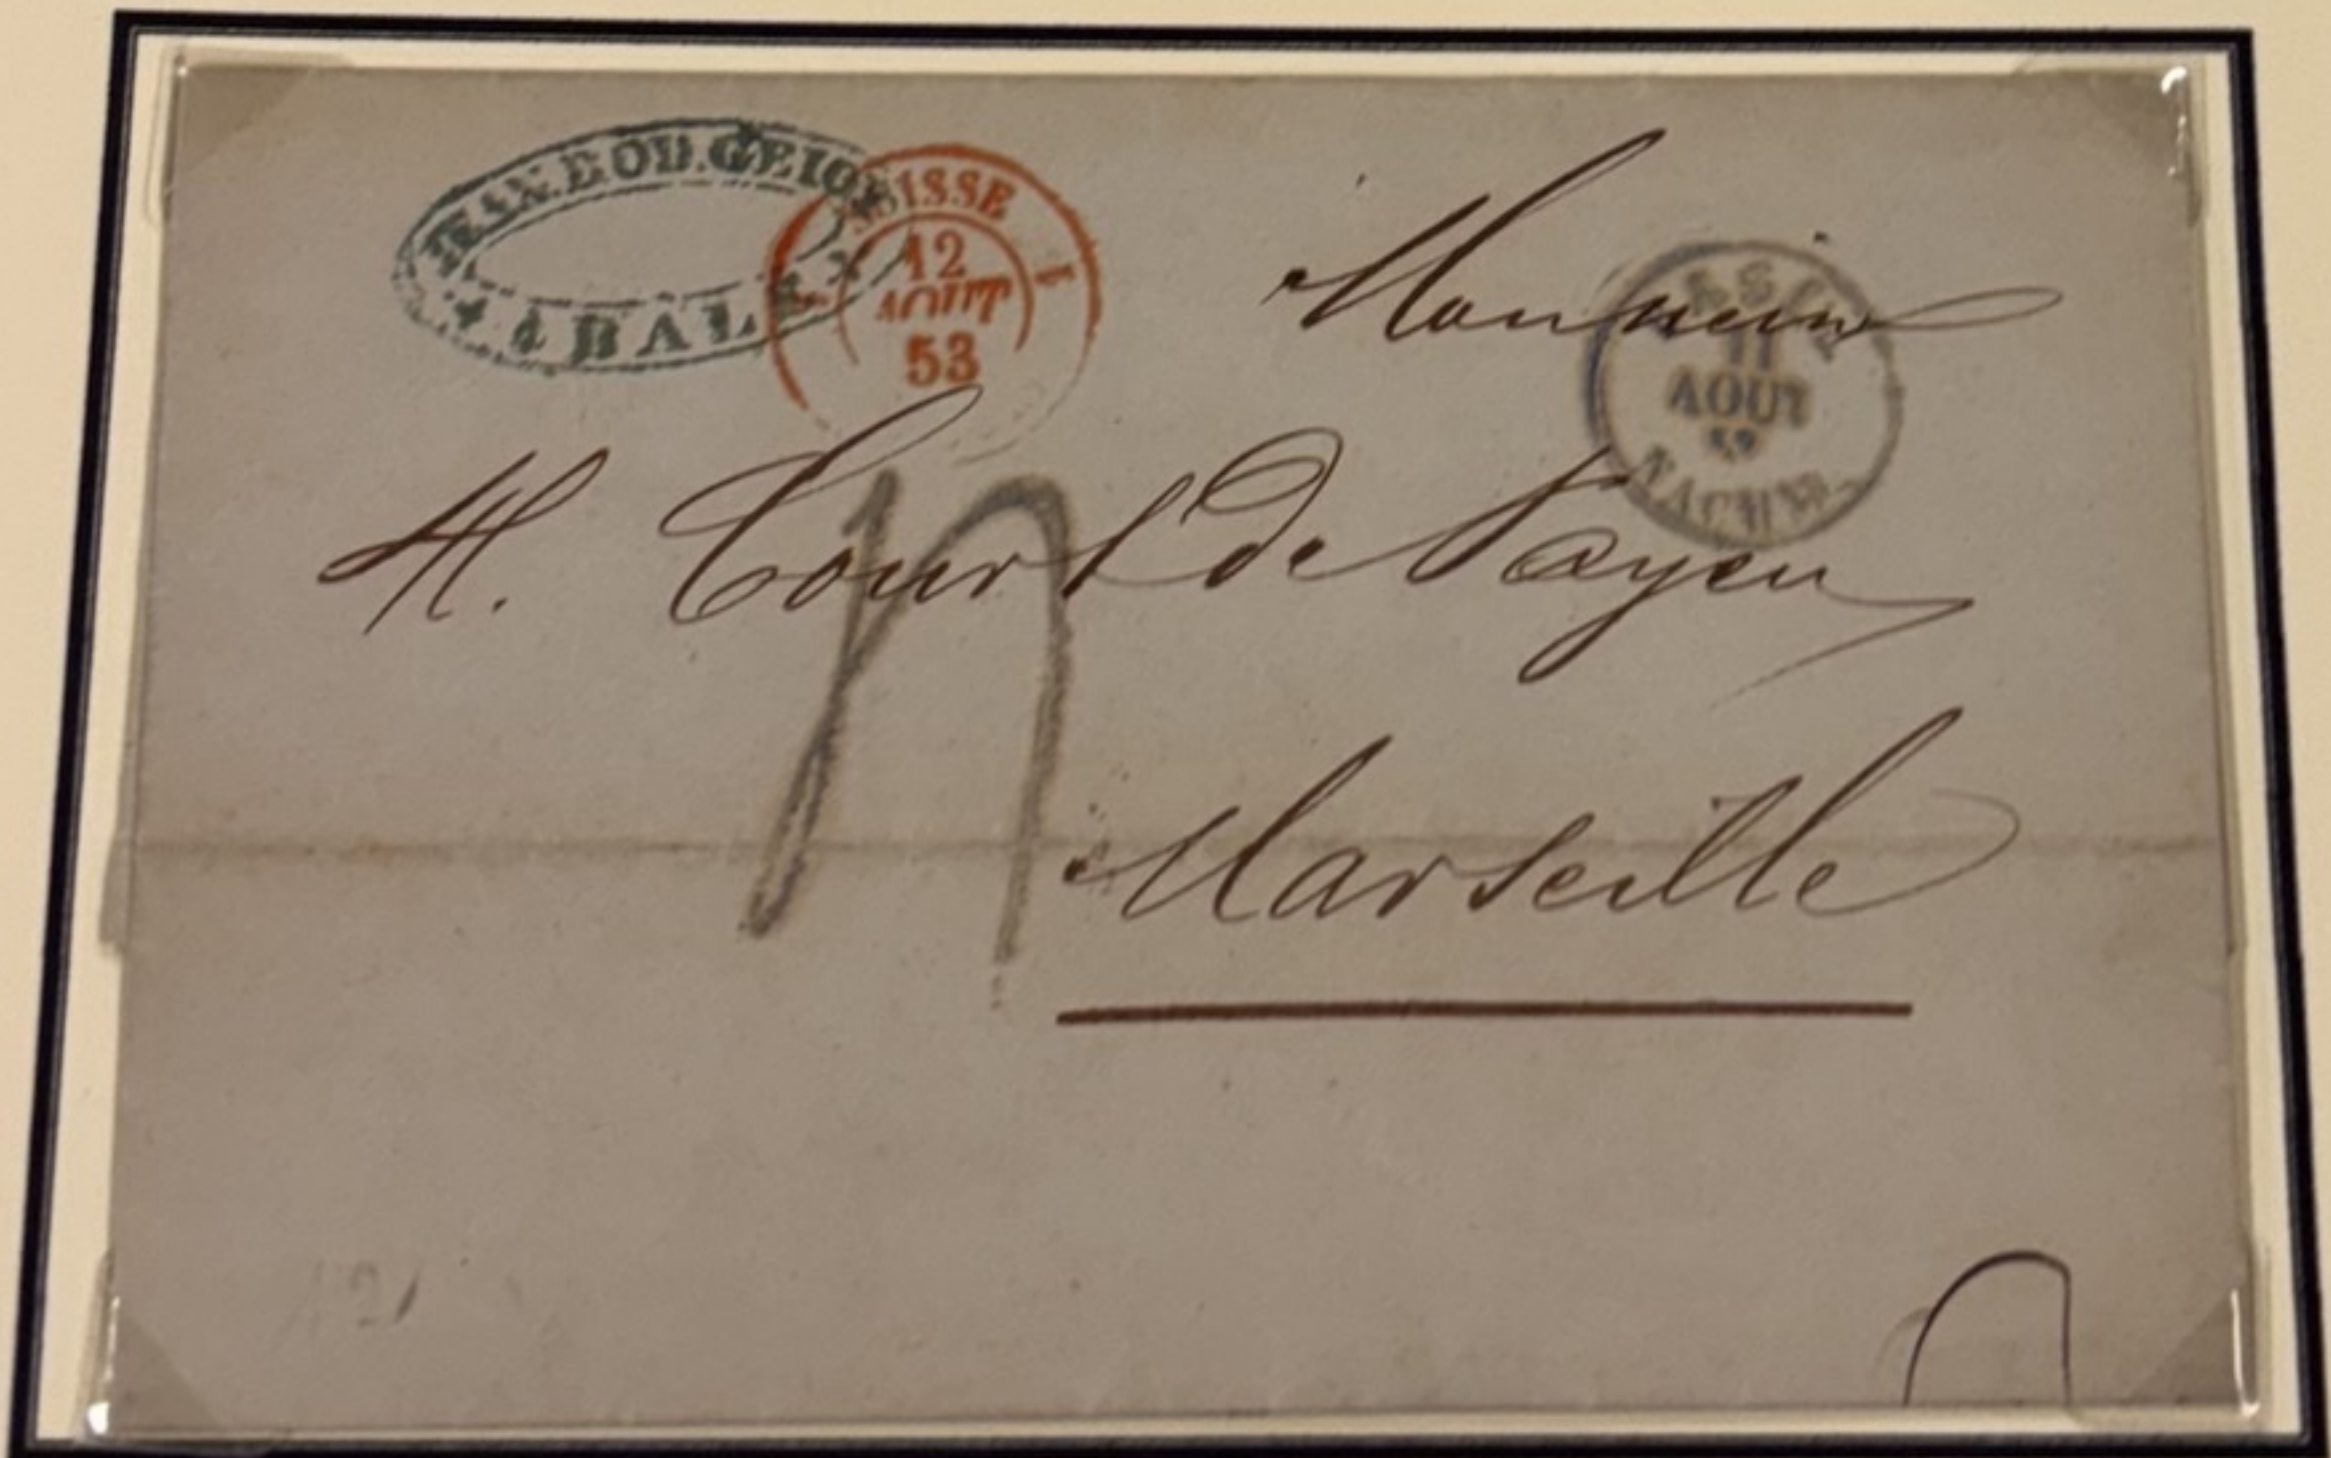 JEAN. ROD. GEIGY
à BALE
SUISSE
12
AOUT
53
BASEL
11
AOUT
53
NACHM.
Monsieur
H. Court de Payen
Marseille